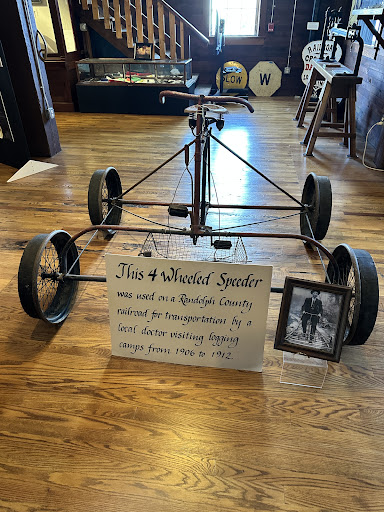 RAILROAD
CR
LOW
W
This 4 Wheeled Speeder
was used on a Randolph County
railroad for transportation by a
local doctor visiting logging
camps from 1906 to 1912.